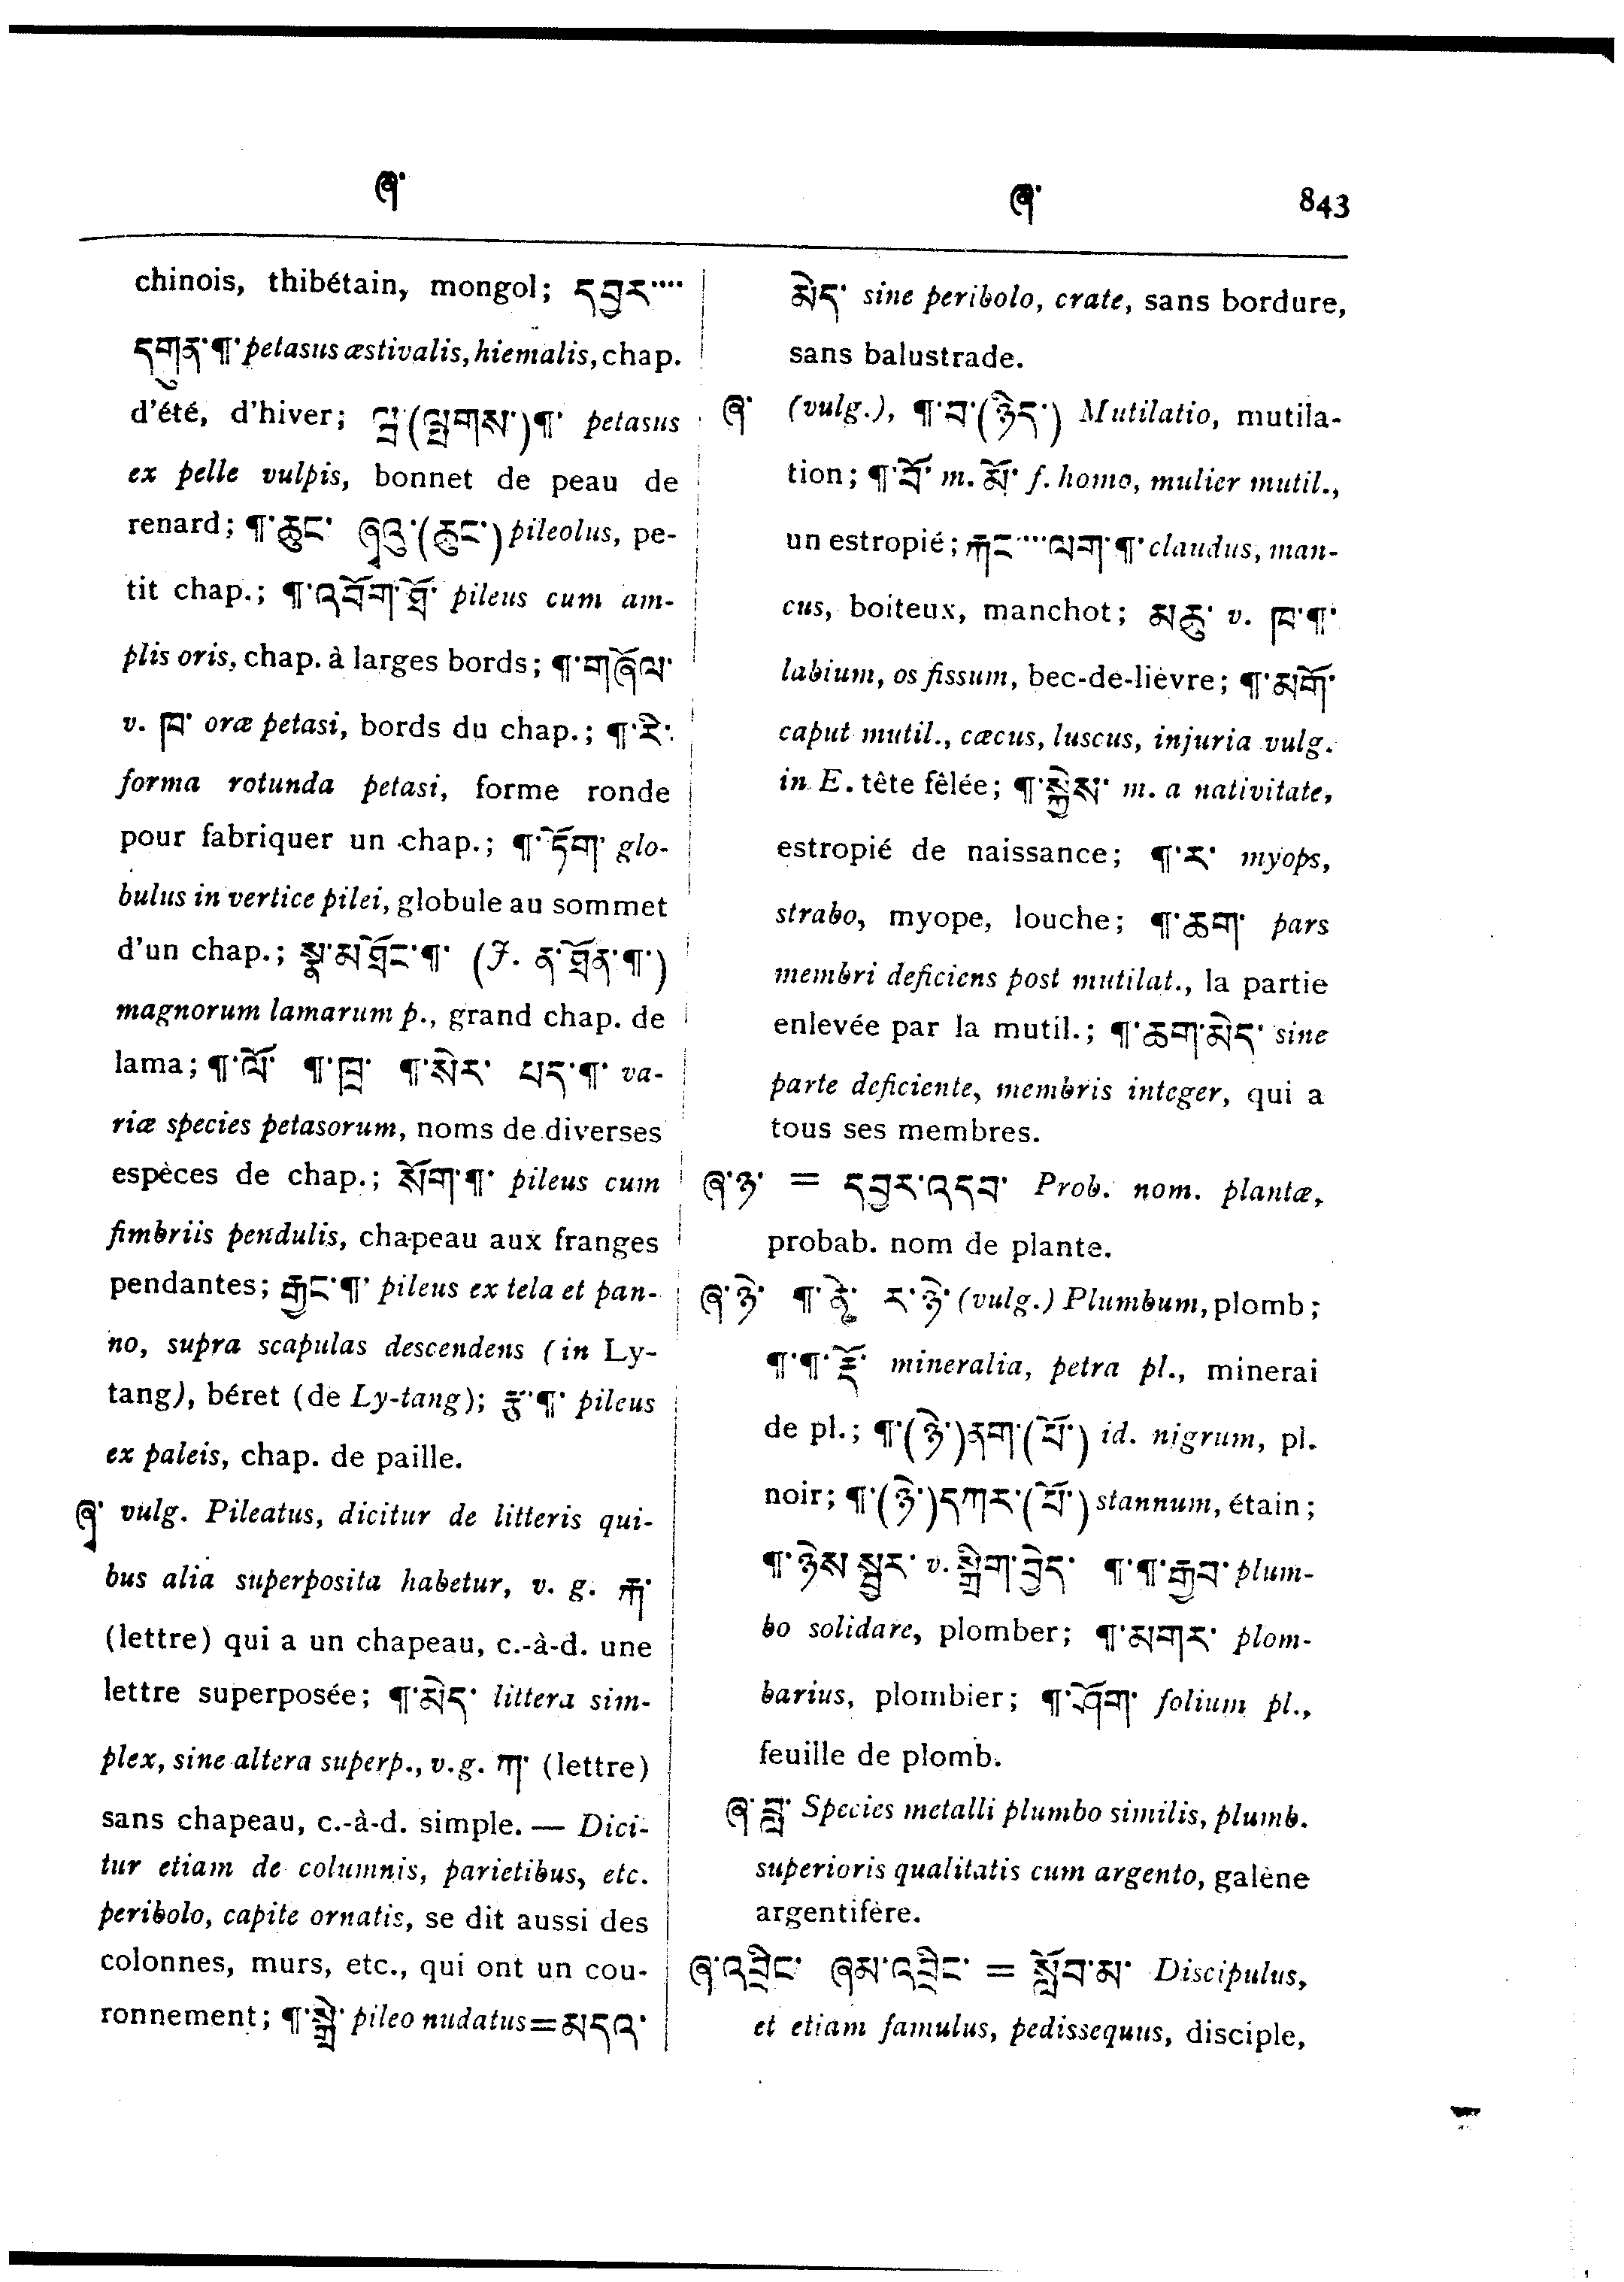 ཞ་
ཞ་ 843
chinois, thibétain, mongol; དབྱར་····
དགུན་¶་ petasus æstivalis, hiemalis, chap.
d'été, d'hiver; ཝ་(ལྤགས་)¶་ petasus
ex pelle vulpis, bonnet de peau de
renard; ¶་ཆུང་ ཞྭའུ་(ཆུང་) pileolus, pe-
tit chap.; ¶་འབོག་ཐོ་ pileus cum am-
plis oris, chap. à larges bords; ¶་གཞོལ་
v. ཁ་ oræ petasi, bords du chap.; ¶་རེ་
forma rotunda petasi, forme ronde
pour fabriquer un chap.; ¶་ཏོག་ glo-
bulus in vertice pilei, globule au sommet
d'un chap.; སྣ་མཐོང་¶་ (J. ན་ཐོན་¶་)
magnorum lamarum p., grand chap. de
lama; ¶་ལོ་ ¶་ཁྲ་ ¶་སེར་ པད་¶་ va-
riæ species petasorum, noms de diverses
espèces de chap.; སོག་¶་ pileus cum
fimbriis pendulis, chapeau aux franges
pendantes; རྒྱང་¶་ pileus ex tela et pan-
no, supra scapulas descendens (in Ly-
tang), béret (de Ly-tang); རྩྭ་¶་ pileus
ex paleis, chap. de paille.
ཞྭ་ vulg. Pileatus, dicitur de litteris qui-
bus alia superposita habetur, v. g. རྐ་
(lettre) qui a un chapeau, c.-à-d. une
lettre superposée; ¶་མེད་ littera sim-
plex, sine altera superp., v. g. ཀ་ (lettre)
sans chapeau, c.-à-d. simple. — Dici-
tur etiam de columnis, parietibus, etc.
peribolo, capite ornatis, se dit aussi des
colonnes, murs, etc., qui ont un cou-
ronnement; ¶་སྒྲེ་ pileo nudatus=མདའ་
མེད་ sine peribolo, crate, sans bordure,
sans balustrade.
ཞ་ (vulg.), ¶་བ་(ཉེད་) Mutilatio, mutila-
tion; ¶་བོ་ m. མོ་ f. homo, mulier mutil.,
un estropié; རྐང་···ལག་¶་ claudus, man-
cus, boiteux, manchot; མཆུ་ v. ཁ་¶་
labium, os fissum, bec-de-lièvre; ¶་མགོ་
caput mutil., cæcus, luscus, injuria vulg.
in E. tête fêlée; ¶་སྐྱེས་ m. a nativitate,
estropié de naissance; ¶་ར་ myops,
strabo, myope, louche; ¶་ཆག་ pars
membri deficiens post mutilat., la partie
enlevée par la mutil.; ¶་ཆག་མེད་ sine
parte deficiente, membris integer, qui a
tous ses membres.
ཞ་ཉ་ = དབྱར་འདབ་ Prob. nom. plantæ,
probab. nom de plante.
ཞ་ཉེ་ ¶་ནེ་ ར་ཉེ་ (vulg.) Plumbum, plomb;
¶་¶་རྡོ་ mineralia, petra pl., minerai
de pl.; ¶་(ཉེ་)ནག་(པོ་) id. nigrum, pl.
noir; ¶་(ཉེ་)དཀར་(པོ་) stannum, étain;
¶་ཉེས་སྦྱར་ v. སྒྲིག་བྱེད་ ¶་¶་རྒྱབ་ plum-
bo solidare, plomber; ¶་མགར་ plom-
barius, plombier; ¶་ཤོག་ folium pl.,
feuille de plomb.
ཞ་བླ་ Species metalli plumbo similis, plumb.
superioris qualitatis cum argento, galène
argentifère.
ཞ་འབྲིང་ ཞམ་འབྲིང་ = སློབ་མ་ Discipulus,
et etiam famulus, pedissequus, disciple,